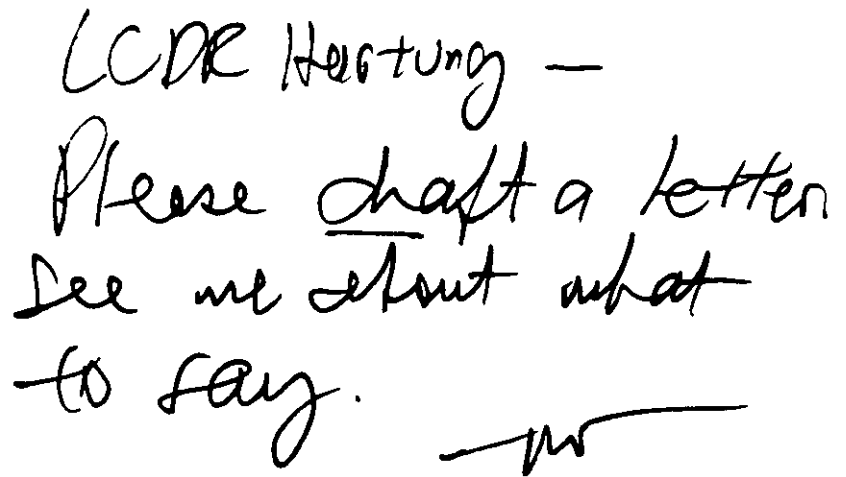 LCDR Hartung —
Please draft a letter
See me about what
to say.